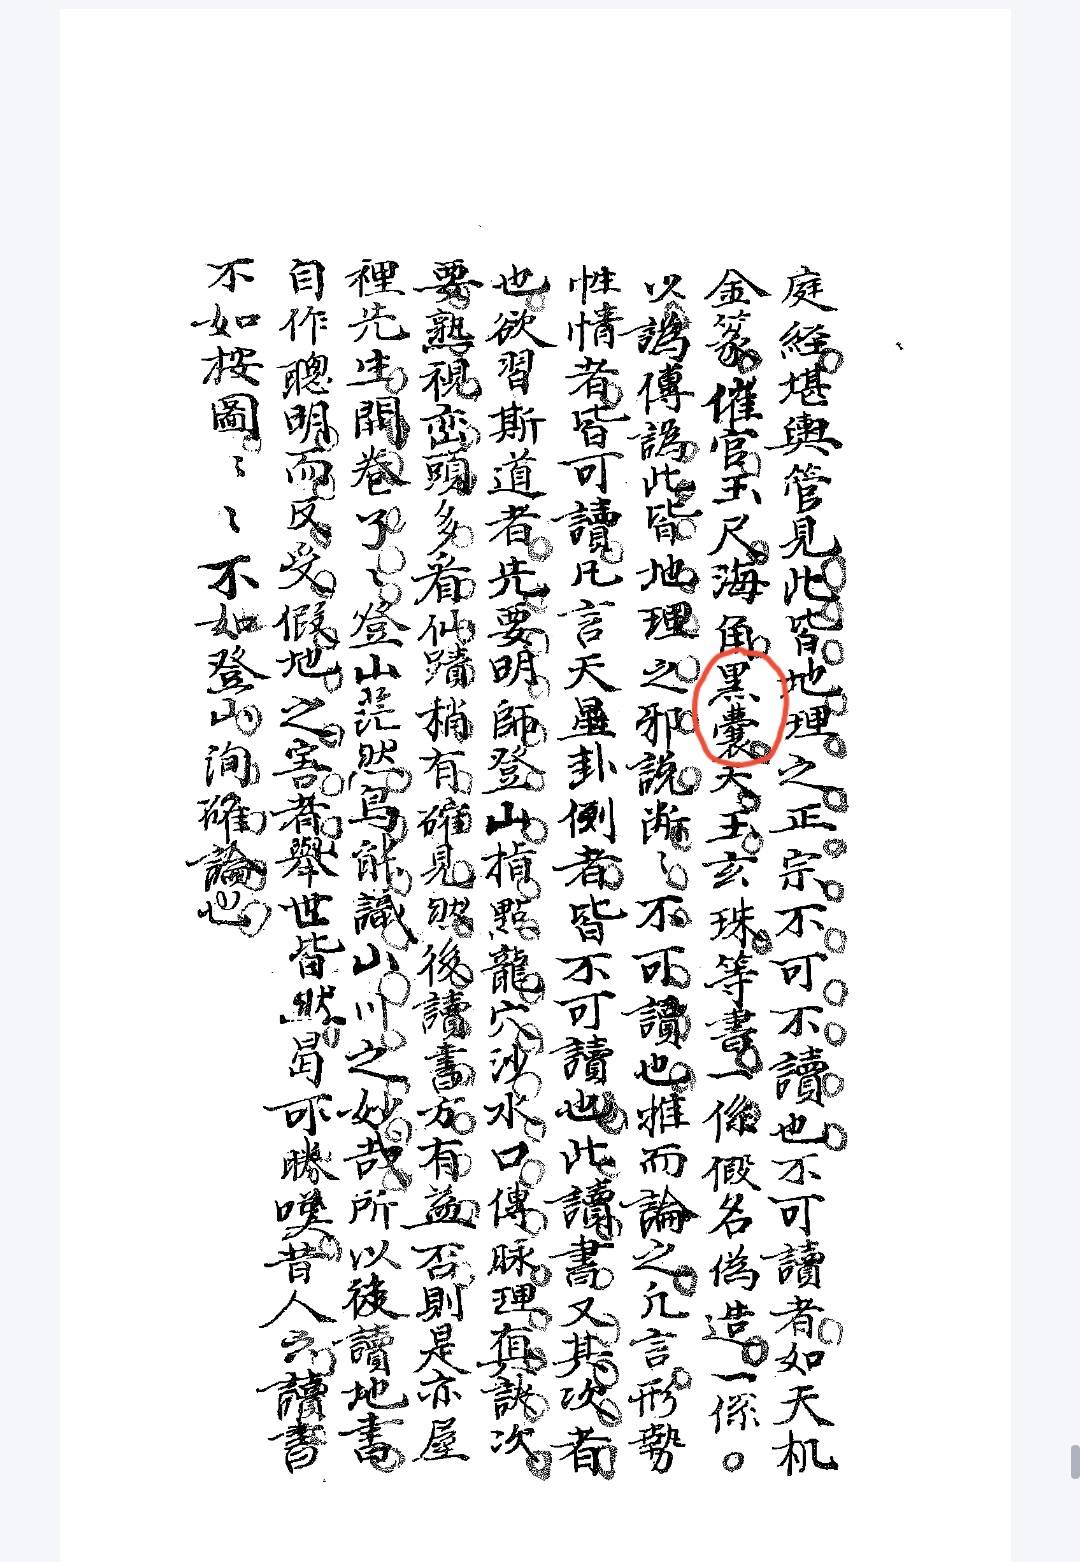 庭経堪輿管見此皆地理之正宗不可不讀也不可讀者如天机
金篆催官玉尺海角黒囊天玉玄珠等書一係假名偽造一係
以譌傳譌此皆地理之邪說断〻不可讀也推而論之凢言形勢
性情者皆可讀凢言天星卦例者皆不可讀也此讀書又其次者
也欲習斯道者先要明師登山指點龍穴沙水口傳脉理真訣次
要熟視巒頭多看仙蹟稍有確見然後讀書方有益否則是亦屋
裡先生開卷了〻登山茫然烏能識山川之妙哉所以徒讀地書
自作聰明而反受假地之害者舉世皆然曷可勝嘆昔人云讀書
不如按圖〻〻不如登山洵確論也